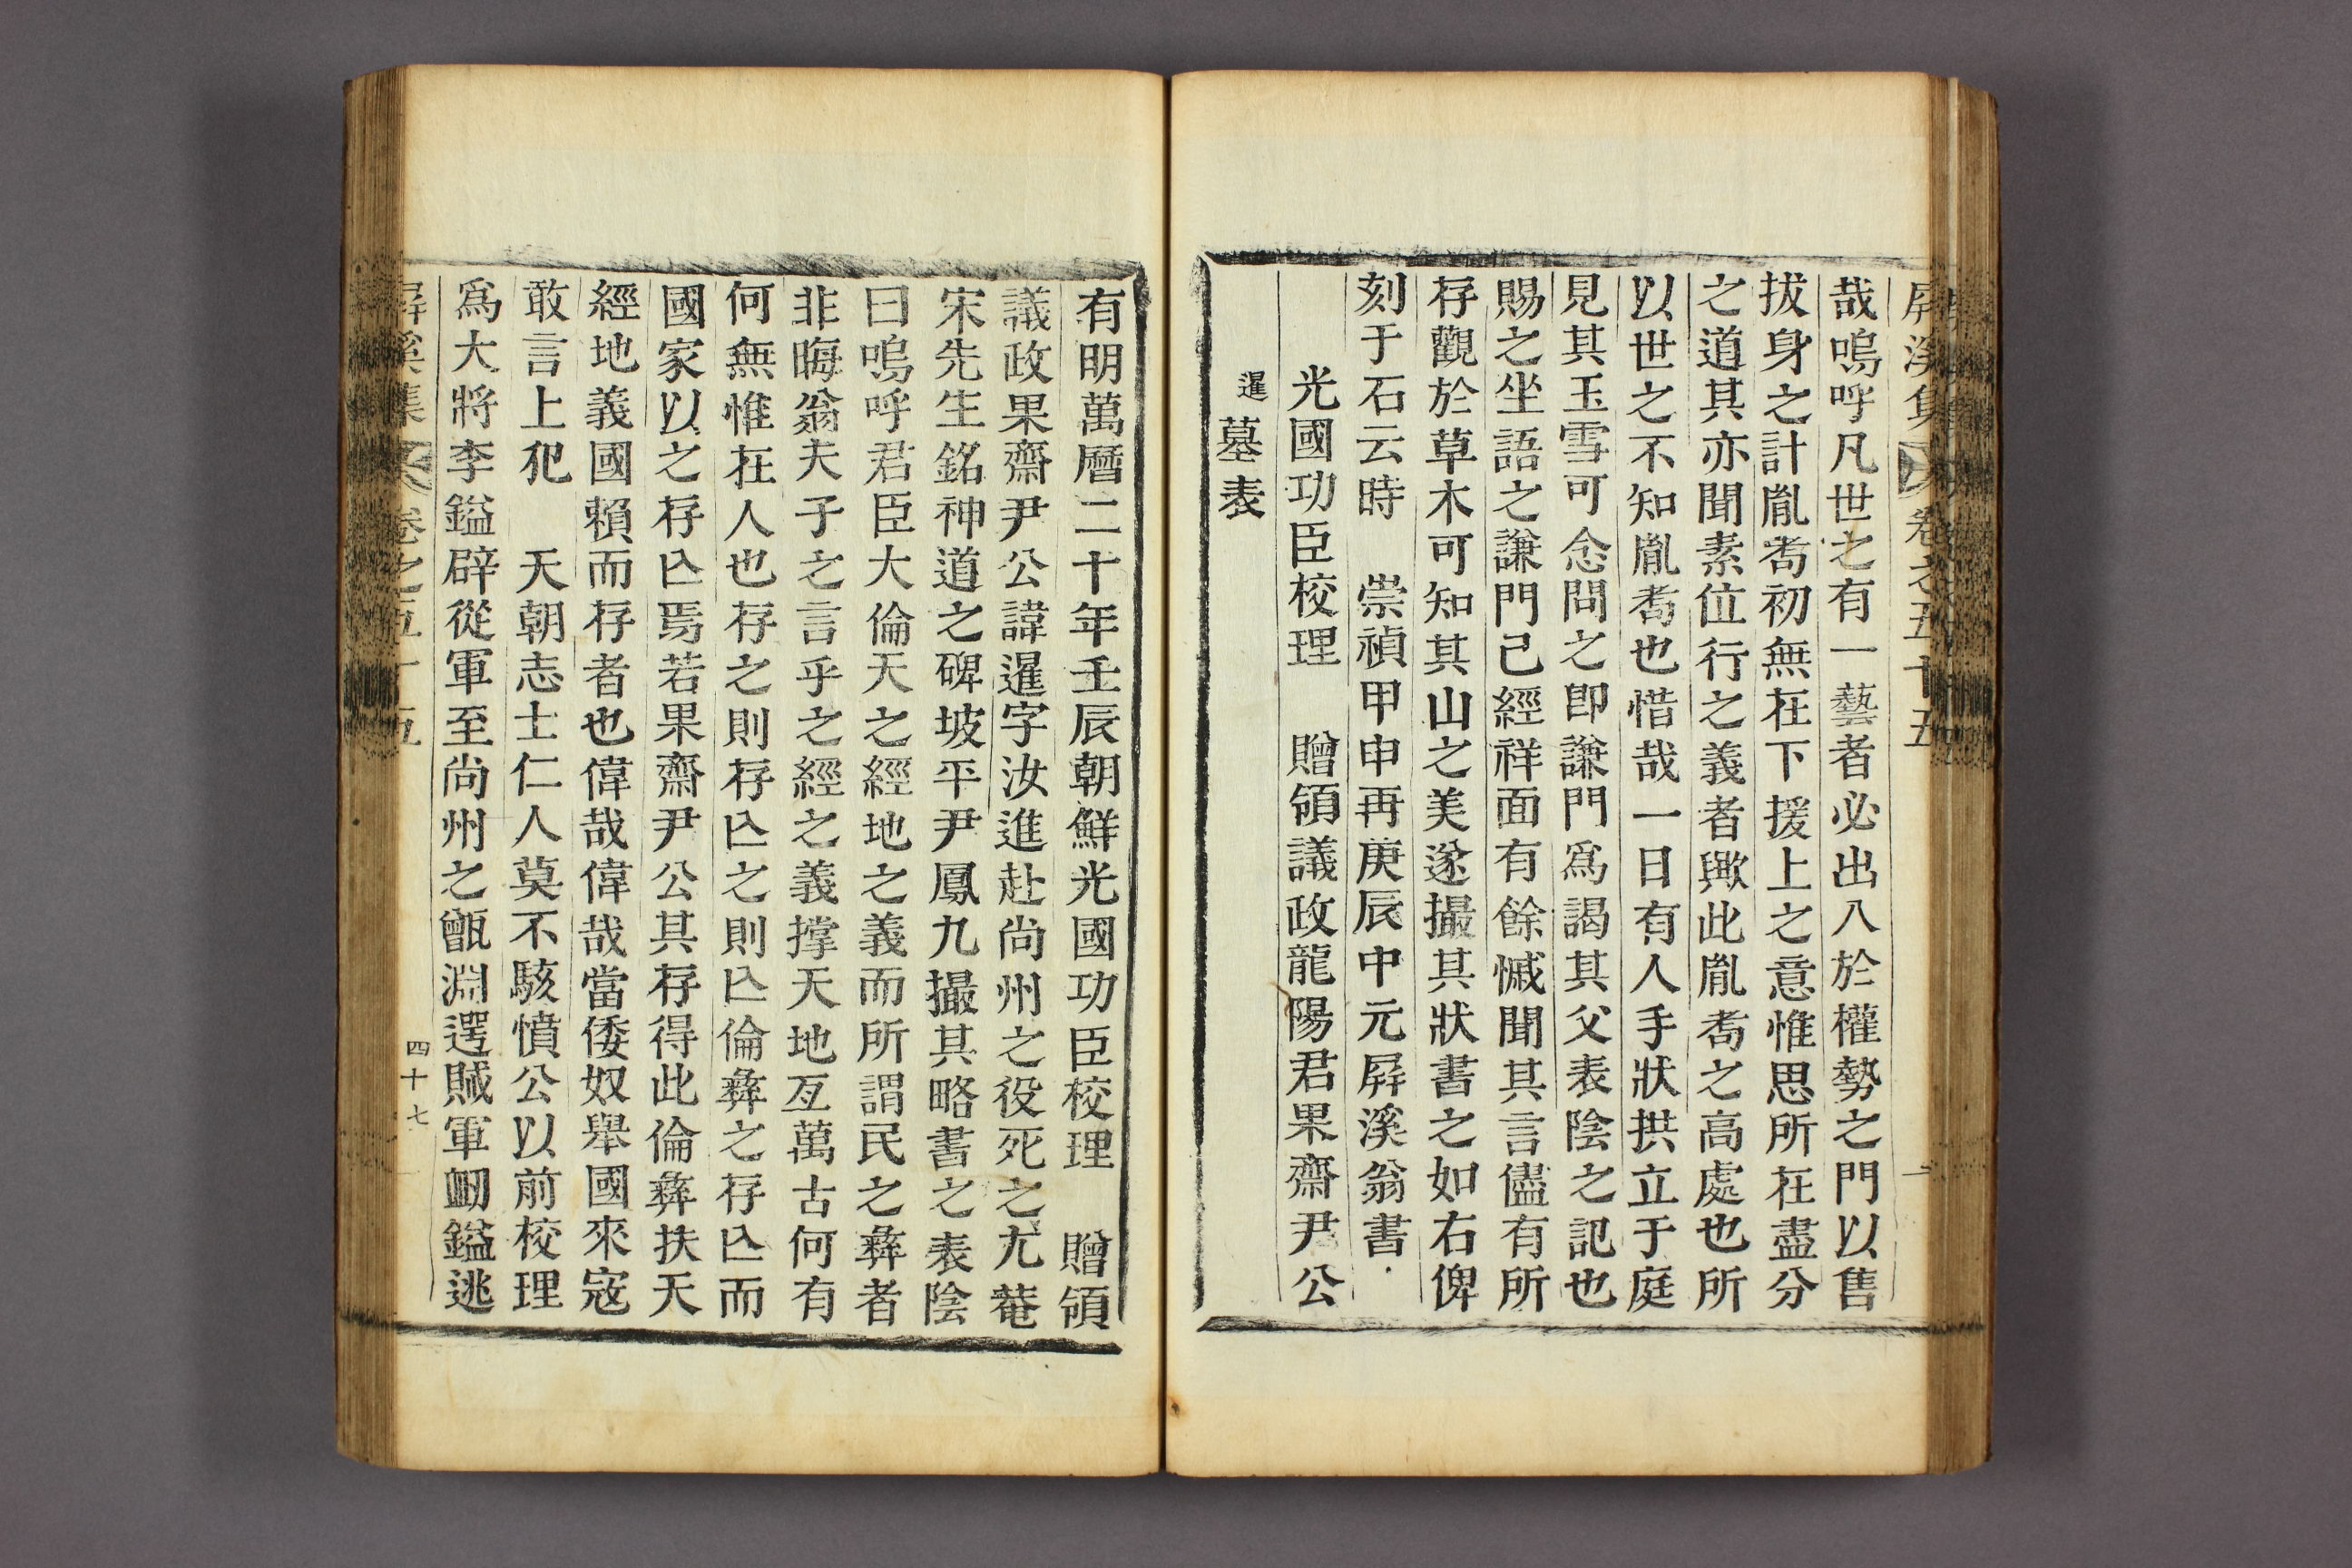 屛溪集 卷之五十五
哉嗚呼凡世之有一藝者必出入於權勢之門以售
拔身之計胤喬初無在下援上之意惟思所在盡分
之道其亦聞素位行之義者歟此胤喬之高處也所
以世之不知胤喬也惜哉一日有人手狀拱立于庭
見其玉雪可念問之卽謙門爲謁其父表陰之記也
賜之坐語之謙門已經祥面有餘慽聞其言儘有所
存觀於草木可知其山之美遂撮其狀書之如右俾
刻于石云時 崇禎甲申再庚辰中元屛溪翁書
光國功臣校理 贈領議政龍陽君果齋尹公
暹墓表
有明萬曆二十年壬辰朝鮮光國功臣校理 贈領
議政果齋尹公諱暹字汝進赴尚州之役死之尤菴
宋先生銘神道之碑坡平尹鳳九撮其略書之表陰
曰嗚呼君臣大倫天之經地之義而所謂民之彝者
非晦翁夫子之言乎之經之義撑天地亙萬古何有
何無惟在人也存之則存亾之則亾倫彝之存亾而
國家以之存亾焉若果齋尹公其存得此倫彝扶天
經地義國賴而存者也偉哉偉哉當倭奴舉國來寇
敢言上犯 天朝志士仁人莫不駭憤公以前校理
爲大將李鎰辟從軍至尚州之甑淵遌賊軍衂鎰逃
屛溪集 卷之五十五
四十七